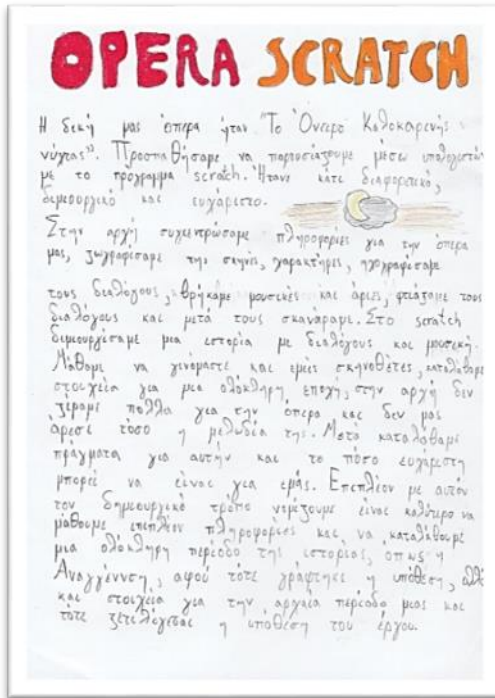 OPERA SCRATCH
Η δική μας όπερα ήταν "Το Όνειρο Καλοκαιρινής
νύχτας". Προσπαθήσαμε να παρουσιάζουμε μέσω υπολογιστών
με το πρόγραμμα scratch. Ήτανε κάτι διαφορετικό,
δημιουργικό και ευχάριστο.
Στην αρχή συγκεντρώσαμε πληροφορίες για την όπερα
μας, ζωγραφίσαμε της σκηνές, χαρακτήρες, ηχογραφίσαμε
τους διαλόγους, βρήκαμε μουσικές και άριες, φτιάξαμε τους
διαλόγους και μετά τους σκανάραμε. Στο scratch
δημιουργίσαμε μια ιστορία με διαλόγους και μουσική.
Μάθαμε να γινόμαστε και εμείς σκηνοθέτες, καταλάβαμε
στοιχεία για μια ολόκληρη εποχή, στην αρχή δεν
ξέραμε πολλά για την όπερα και δεν μας
άρεσε τόσο η μελωδία της. Μετά καταλάβαμε
πράγματα για αυτήν και το πόσο ευχάριστη
μπορεί να είναι για εμάς. Επιπλέον με αυτόν
τον δημιουργικό τρόπο νομίζουμε είναι καλύτερο να
μάθουμε επιπλέον πληροφορίες και να καταλάβουμε
μια ολόκληρη περίοδο της ιστορίας, όπως η
Αναγγέννιση, αφού τότε γράφτηκε η υπόθεση, αλλά
και στοιχεία για την αρχαία περίοδο μιας και
τότε ξετυλίγεται η υπόθεση του έργου.